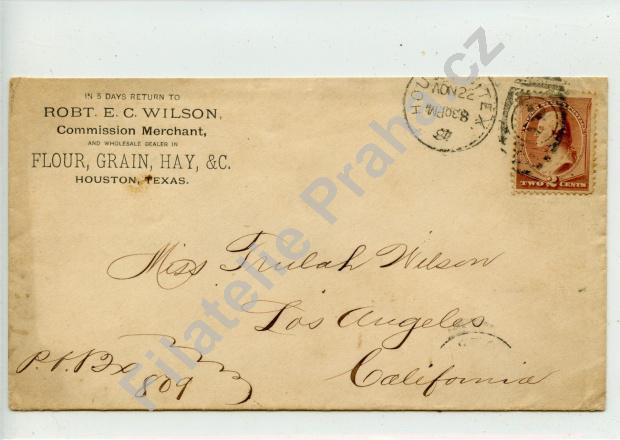 IN 5 DAYS RETURN TO
ROBT. E. C. WILSON,
Commission Merchant,
AND WHOLESALE DEALER IN
FLOUR, GRAIN, HAY, &C.
HOUSTON, TEXAS.
HOU TEX.
NOV 22
830PM
TWO 2 CENTS
Miss Trulah Wilson
Los Angeles
California
P.O. Box
809
Filatelie Praha.cz